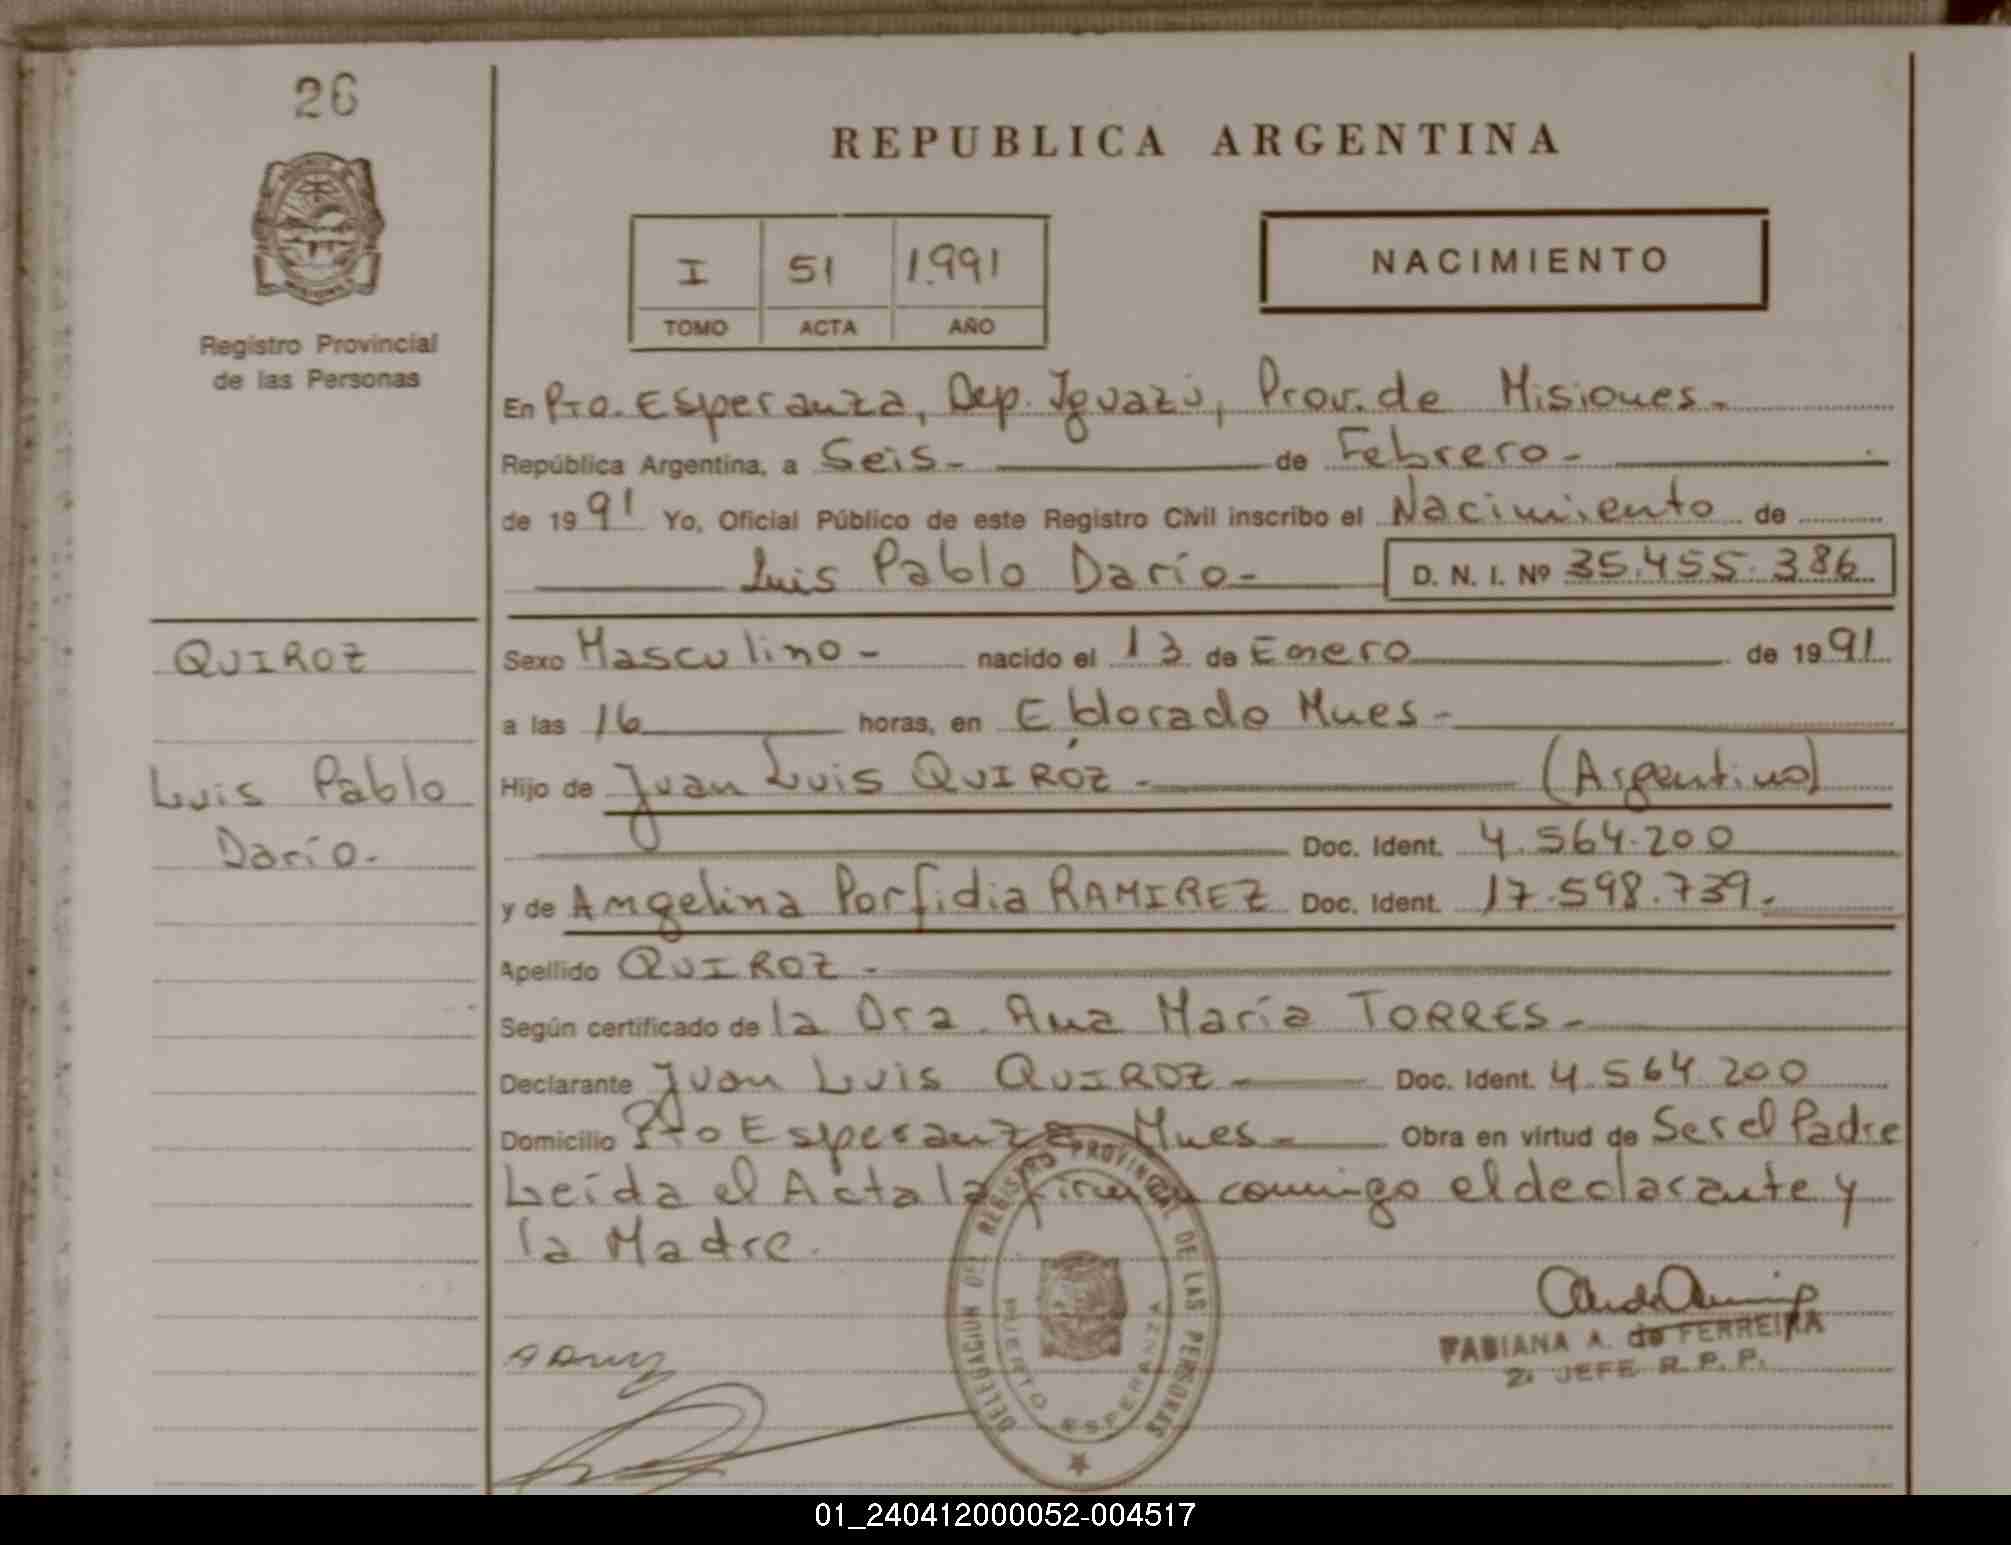 26
REPUBLICA ARGENTINA
I 51 1.991
TOMO ACTA AÑO
NACIMIENTO
Registro Provincial
de las Personas
En Pto. Esperanza, Dep. Iguazú, Prov. de Misiones.-
República Argentina, a Seis.- de Febrero.-
de 1991 Yo, Oficial Público de este Registro Civil inscribo el Nacimiento de
Luis Pablo Darío.- D. N. I. Nº 35.455.386
QUIROZ
Luis Pablo
Darío.-
Sexo Masculino.- nacido el 13 de Enero de 1991
a las 16 horas, en Eldorado Mnes.-
Hijo de Juan Luis QUIROZ.- (Argentino)
Doc. Ident. 4.564.200
y de Angelina Porfidia RAMIREZ Doc. Ident. 17.598.739.-
Apellido QUIROZ.-
Según certificado de la Dra. Ana María TORRES.-
Declarante Juan Luis QUIROZ.- Doc. Ident. 4.564.200
Domicilio Pto Esperanza Mnes.- Obra en virtud de Ser el Padre
Leída el Acta la firman conmigo el declarante y
la Madre.
DELEGACION DEL REGISTRO PROVINCIAL DE LAS PERSONAS
PUERTO ESPERANZA
FABIANA A. de FERREIRA
2º JEFE R. P. P.
01_240412000052-004517